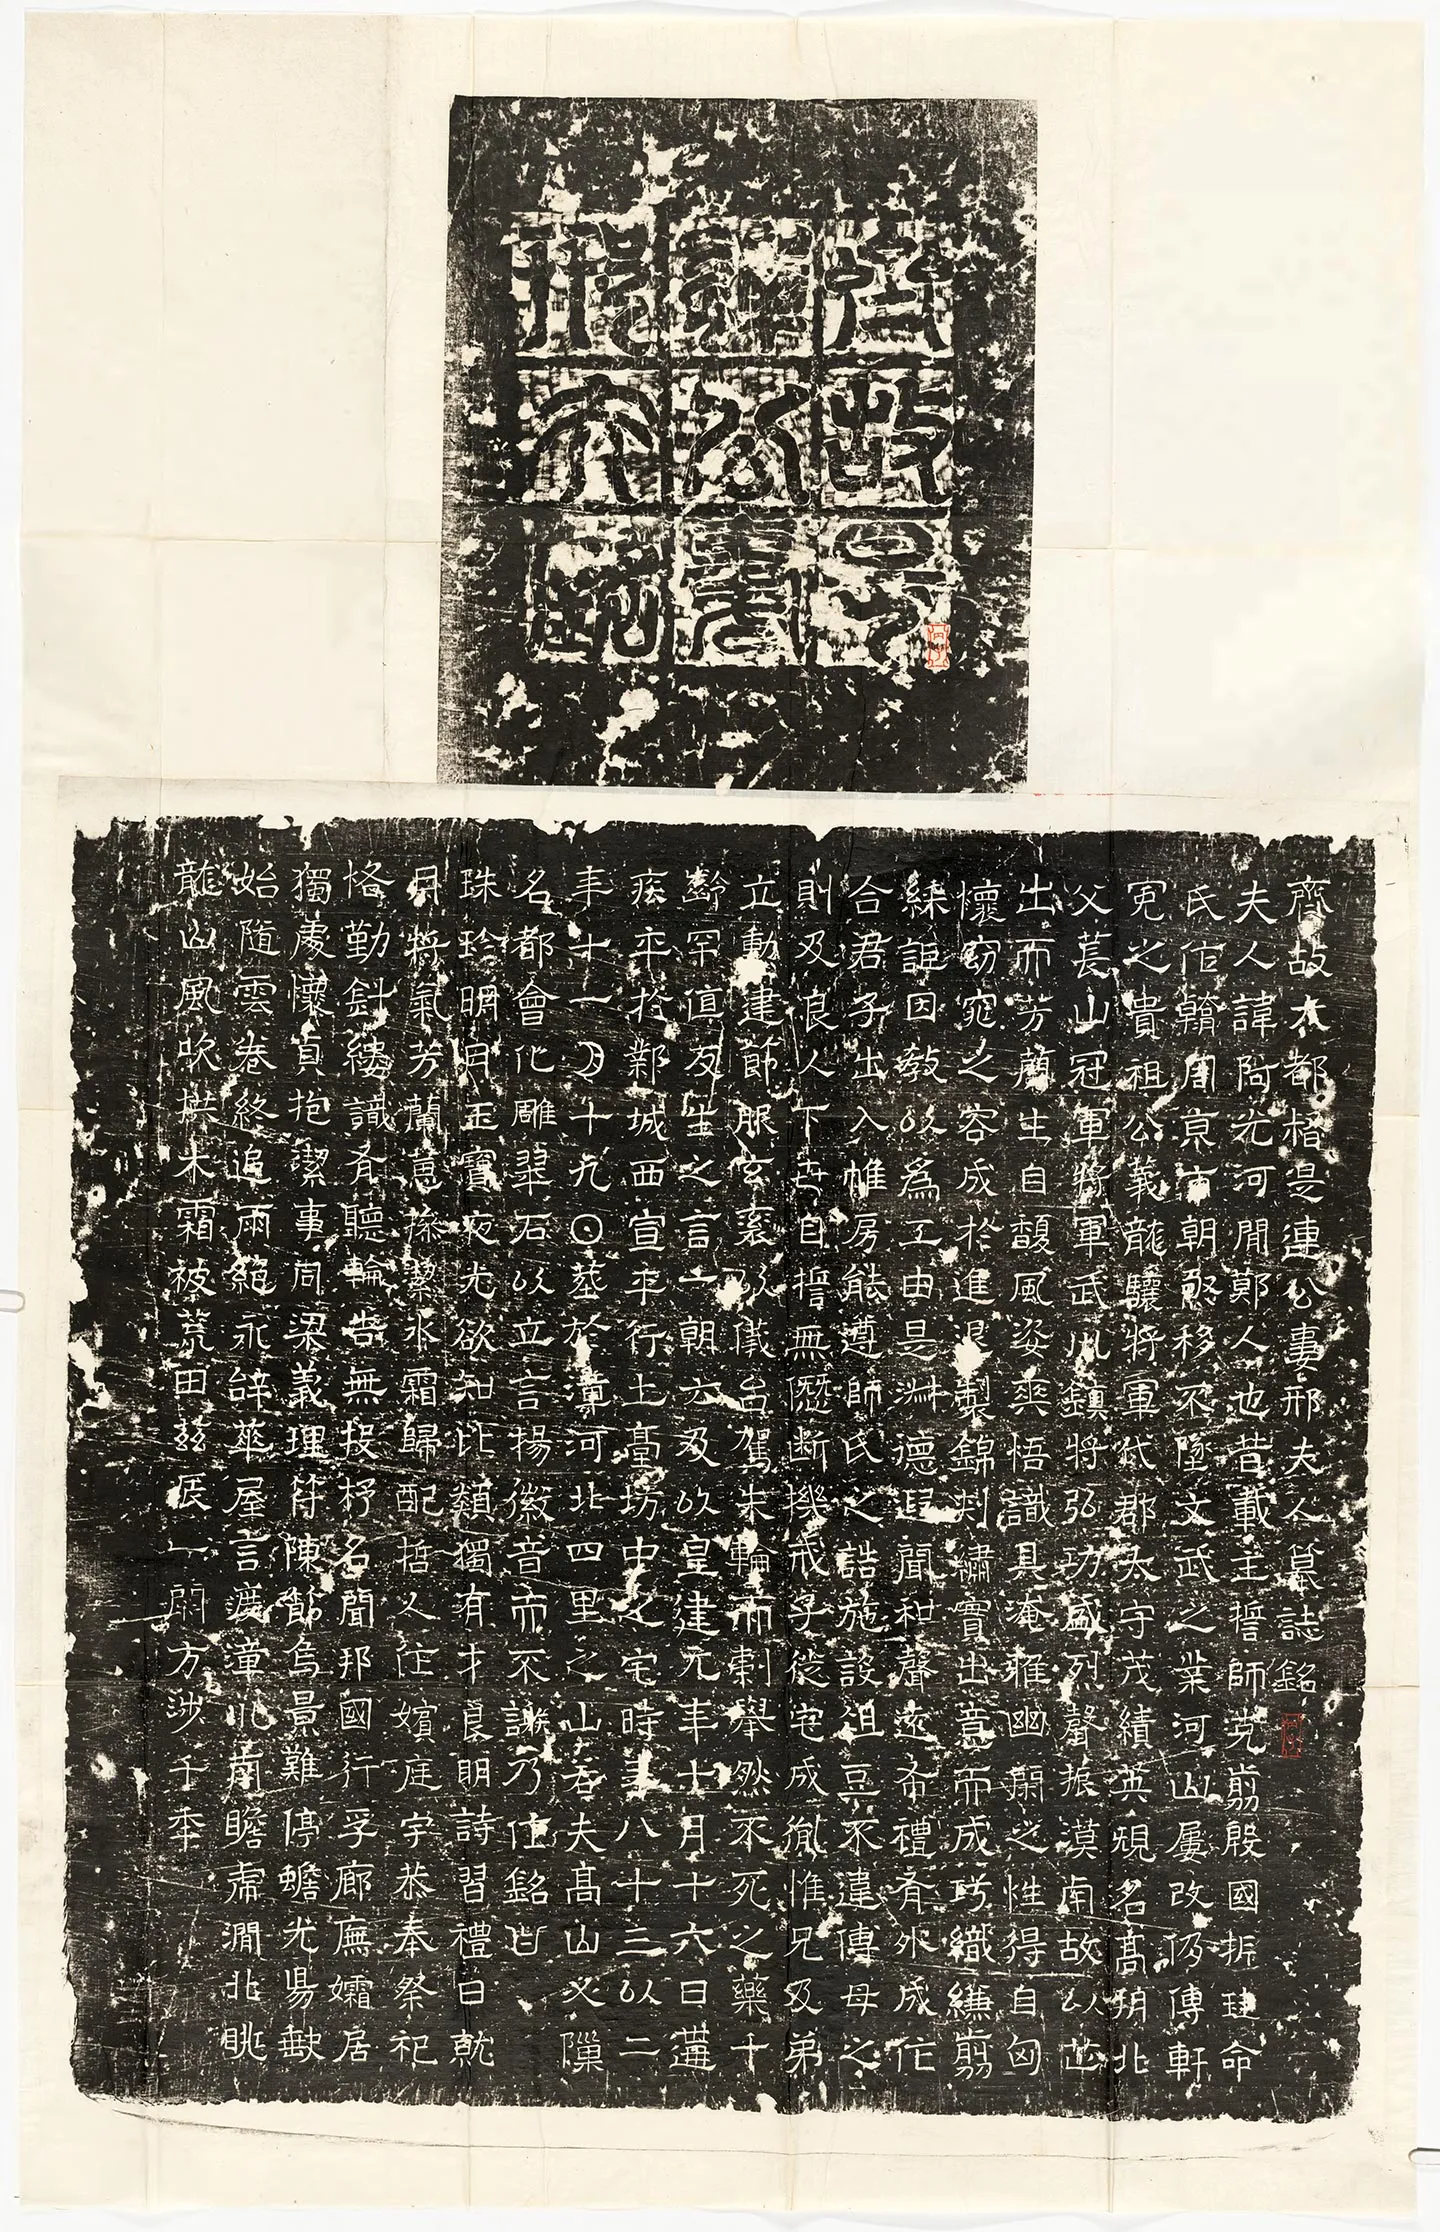 齊故是
連公妻
邢夫銘
齊故大都督是連公妻邢夫人墓誌銘
夫人諱阿光河間鄚人也昔載主誓師克翦殷國折珪命
氏作翰周京市朝驟移不墜文武之業河山屢改仍傳軒
冕之貴祖公義龍驤將軍代郡太守茂績英規名高朔北
父萇山冠軍將軍武川鎮將弘功盛烈聲振漠南故以芷
出而芳蘭生自馥風姿爽悟識具淹雅幽閑之性得自匈
懷窈窕之容成於進退製錦刺繡實出意而成巧織縑翦
綵詎因教以為工由是淋德遐聞和聲遠布禮肴外成作
合君子出入帷房能遵師氏之誥施設俎豆不違傅母之
則及良人下世自誓無愆斷機戒子徙宅成胤惟兄及弟
立勳建節服玄袞以儀台駕朱輪而剸舉然不死之藥十
齡罕值反生之言一朝亦及以皇建元年十一月十六日遘
疾卒於鄴城西宣平行土臺坊中之宅時年八十三以二
年十一月十九日葬於漳河北四里之山夫高山必隟
名都會化雕翠石以立言揚徽音而不謝乃作銘曰
珠玲明月玉寶夜光欲知比類獨有才良明詩習禮日就
月將氣芳蘭蕙操潔冰霜歸配哲人作嬪庭宇恭奉祭祀
恪勤針縷識肴聽輪告無投杼名聞邦國行孚廊廡孀居
獨處懷貞抱潔事同梁義理符陳節烏景難停蟾光易缺
始隨雲卷終追雨絕永辭華屋言漳北南瞻虎澗北眺
龍山風吹拱木霜被荒田茲扆一閉方涉千年